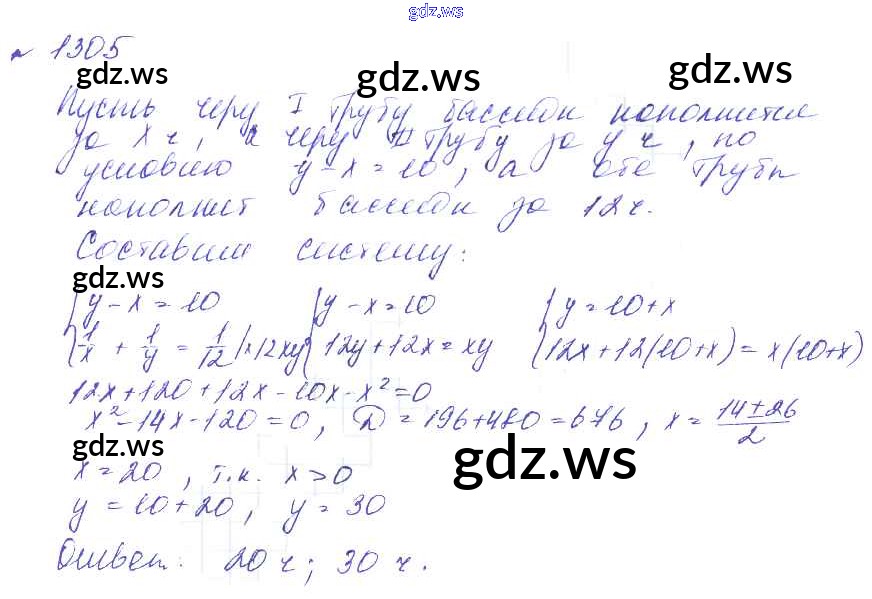 gdz.ws
№ 1305
gdz.ws gdz.ws gdz.ws
Пусть через I трубу бассейн наполнится
за x ч, а через II трубу за y ч, по
условию y - x = 10, а обе трубы
наполнят бассейн за 12 ч.
Составим систему:
gdz.ws
{ y - x = 10 { y - x = 10 { y = 10 + x
{ 1/x + 1/y = 1/12 | × 12xy { 12y + 12x = xy { 12x + 12(10 + x) = x(10 + x)
12x + 120 + 12x - 10x - x² = 0
x² - 14x - 120 = 0, D = 196 + 480 = 676, x = (14 ± 26)/2
gdz.ws gdz.ws
x = 20, т.к. x > 0
y = 10 + 20, y = 30
Ответ: 20 ч; 30 ч.